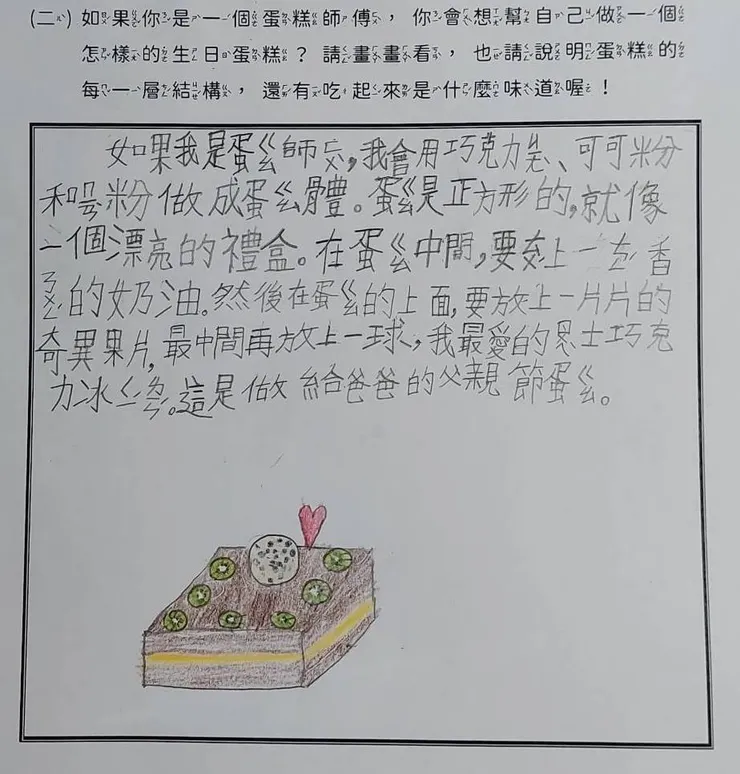 (二) 如果你是一個蛋糕師傅，你會想幫自己做一個
怎樣的生日蛋糕？請畫畫看，也請說明蛋糕的
每一層結構，還有吃起來是什麼味道喔！
如果我是蛋ㄍㄠ師ㄈㄨˋ,我會用巧克力ㄐㄧㄤˋ、可可粉
和ㄇㄧㄢˋ粉做成蛋ㄍㄠ體。蛋ㄍㄠ是正方形的,就像
一個漂亮的禮盒。在蛋ㄍㄠ中間,要夾上一ㄘㄥˊ香
ㄋㄨㄥˊ的奶油。然後在蛋ㄍㄠ的上面,要放上一片片的
奇異果片,最中間再放上一球,我最愛的恩士巧克
力冰ㄑㄧˊㄌㄧㄣˊ。這是做給爸爸的父親節蛋ㄍㄠ。